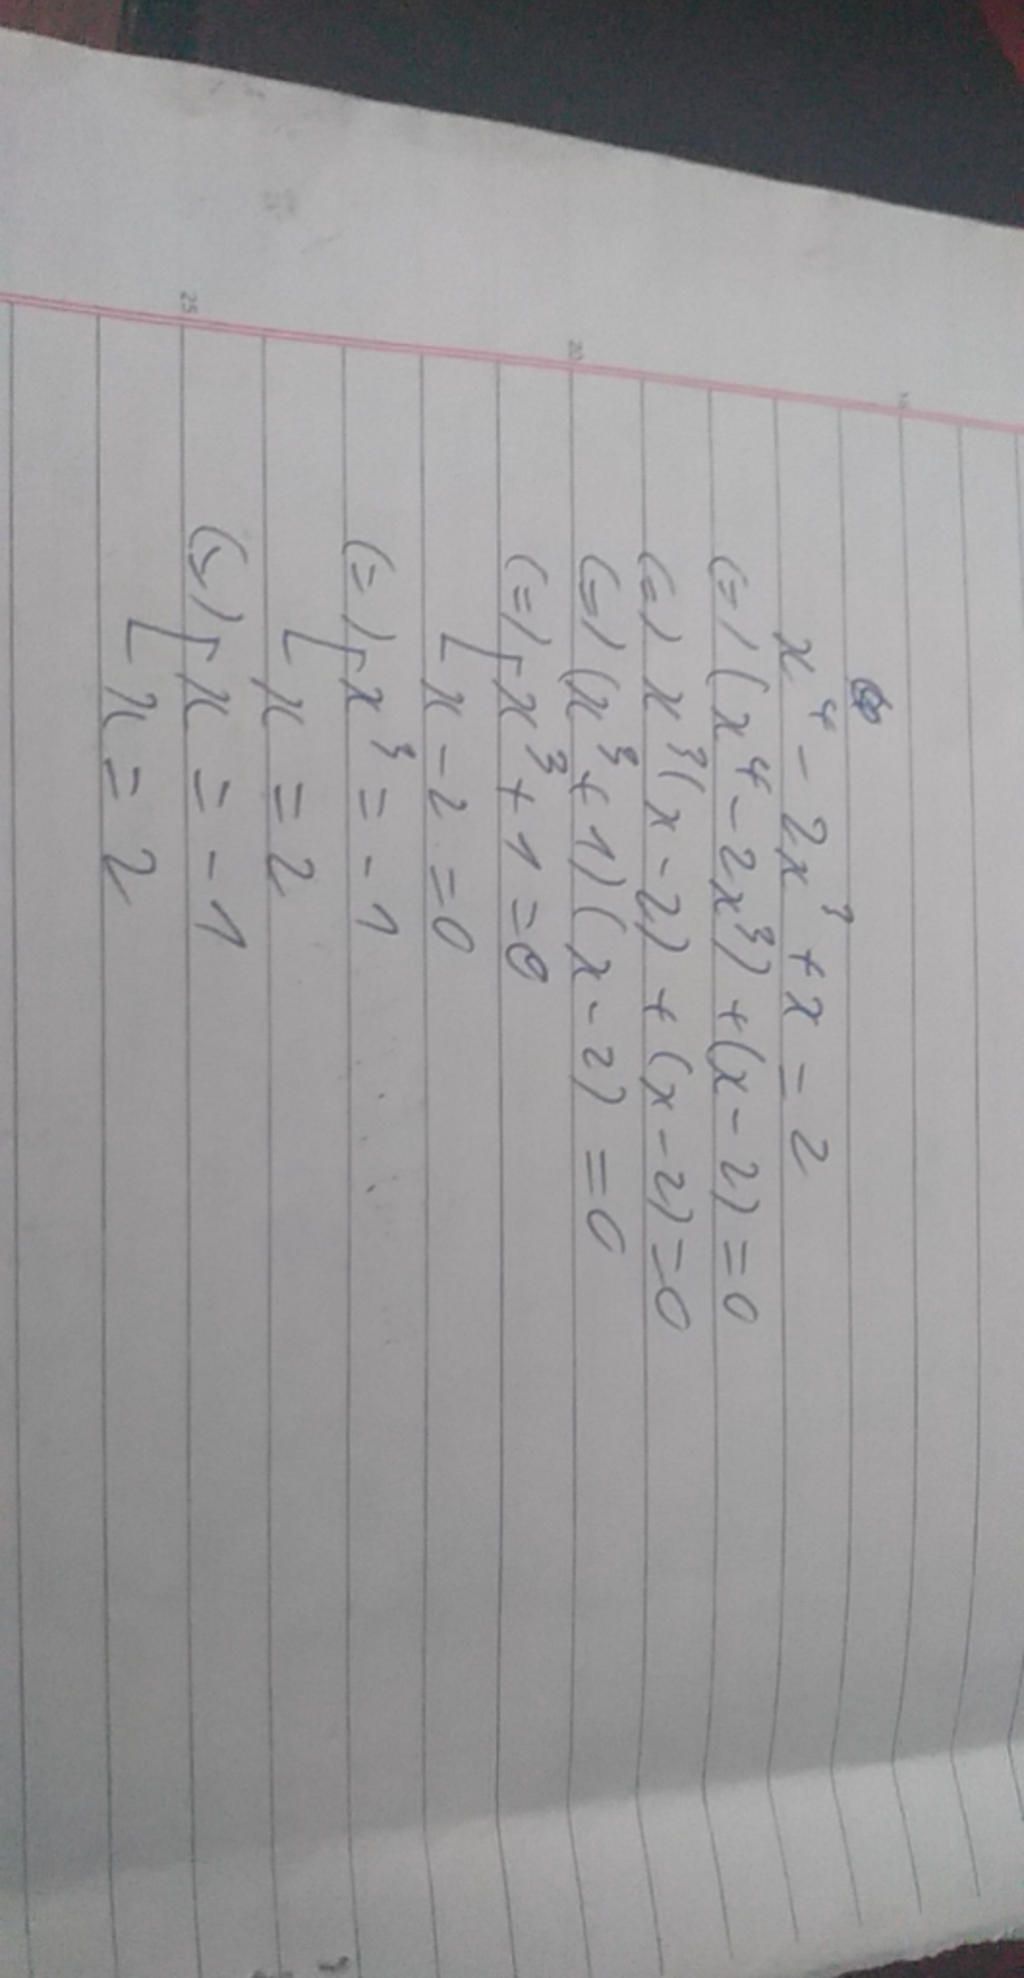 x⁴ - 2x³ + x = 2
(=) (x⁴ - 2x³) + (x - 2) = 0
(=) x³(x - 2) + (x - 2) = 0
(=) (x³ + 1)(x - 2) = 0
(=) [ x³ + 1 = 0
[ x - 2 = 0
(=) [ x³ = -1
[ x = 2
(=) [ x = -1
[ x = 2
20
25